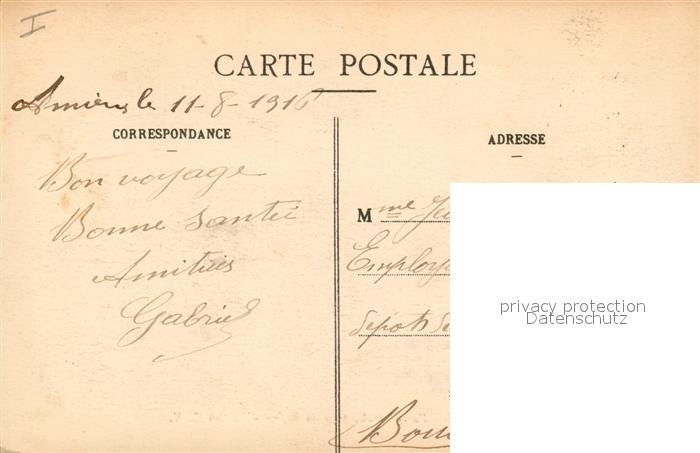 I
CARTE POSTALE
Amiens le 11-8-1916
CORRESPONDANCE
Bon voyage
Bonne Santé
Amitiés
Gabriel
ADRESSE
Mme
Employ
dépôts de
Bou
privacy protection
Datenschutz